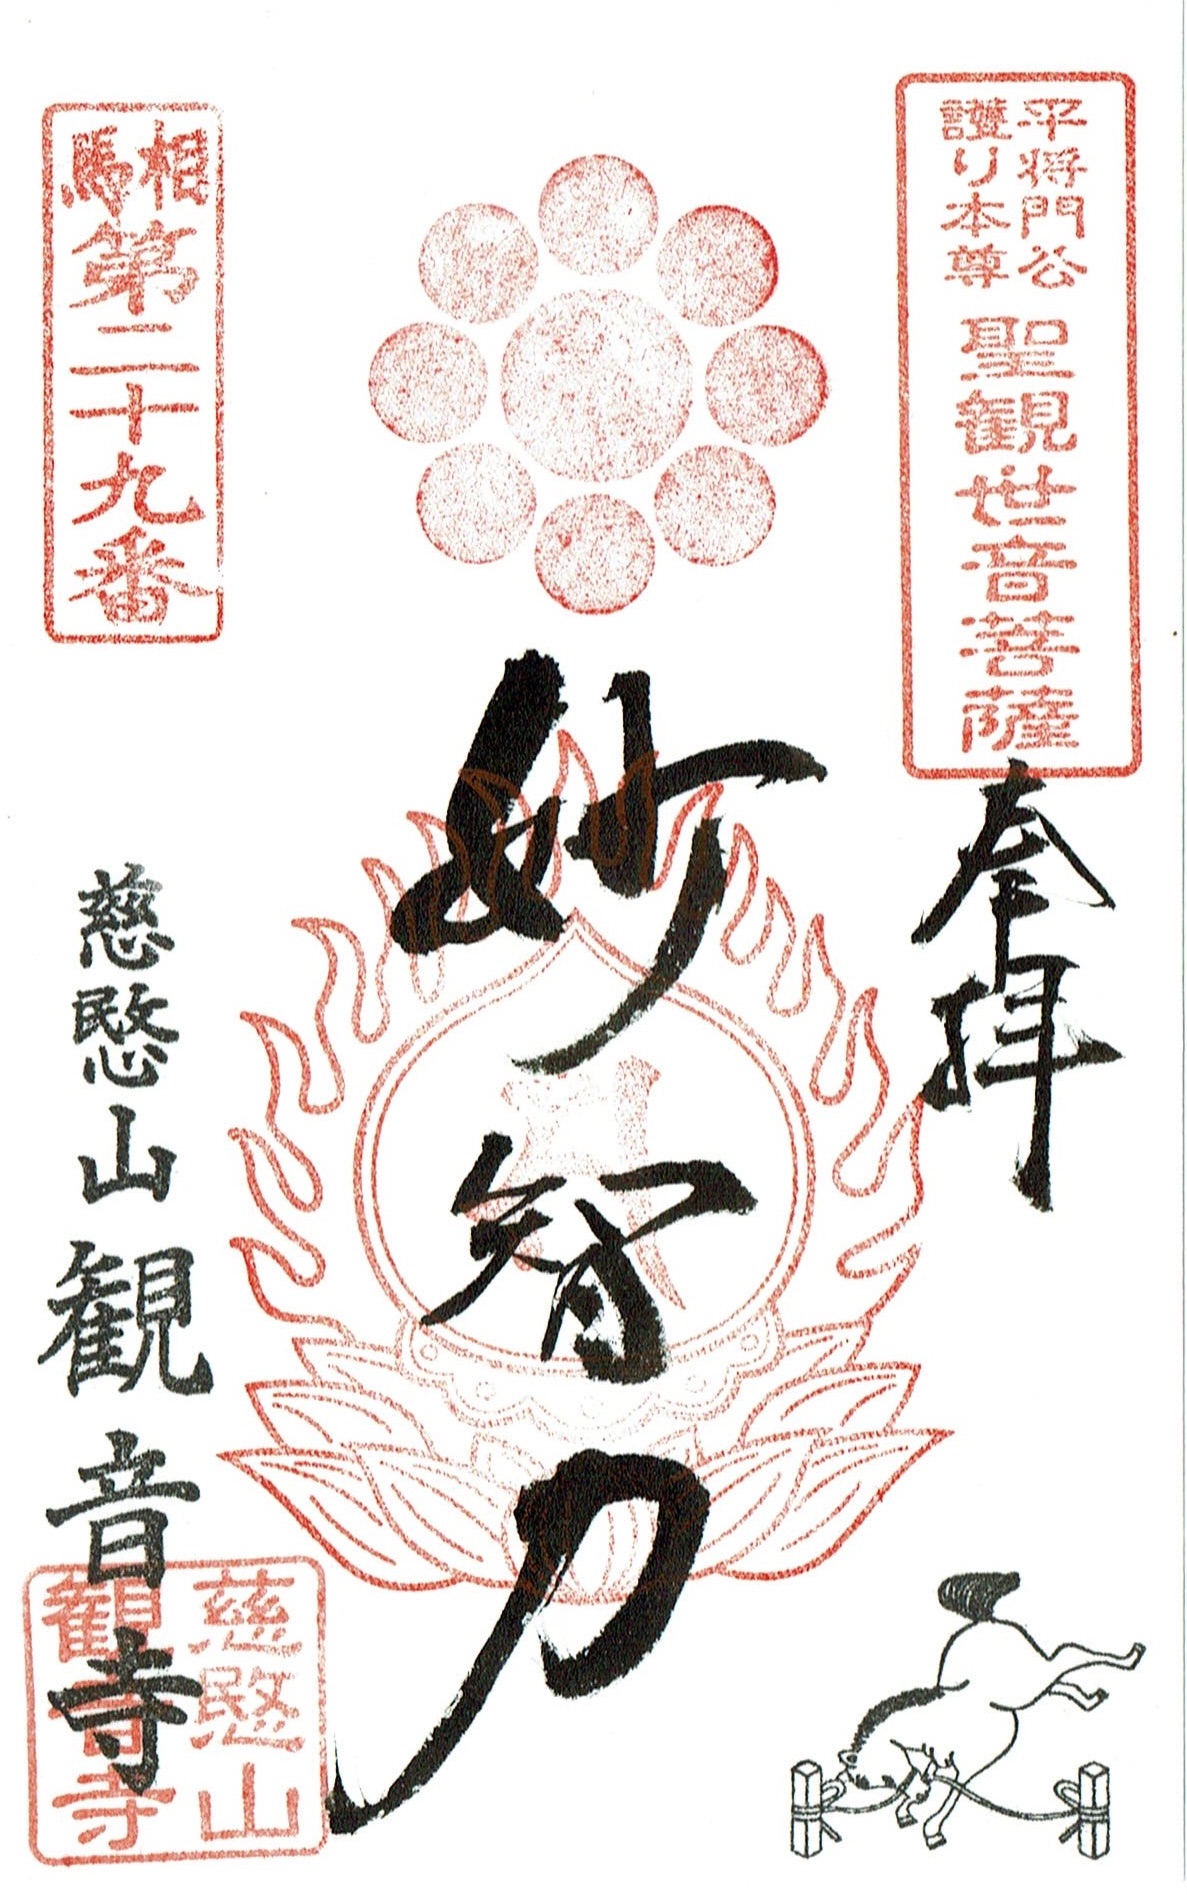 平将門公
護り本尊
聖観世音菩薩
奉拝
妙智力
相馬
第二十九番
慈愍山観音寺
慈愍山
観音寺